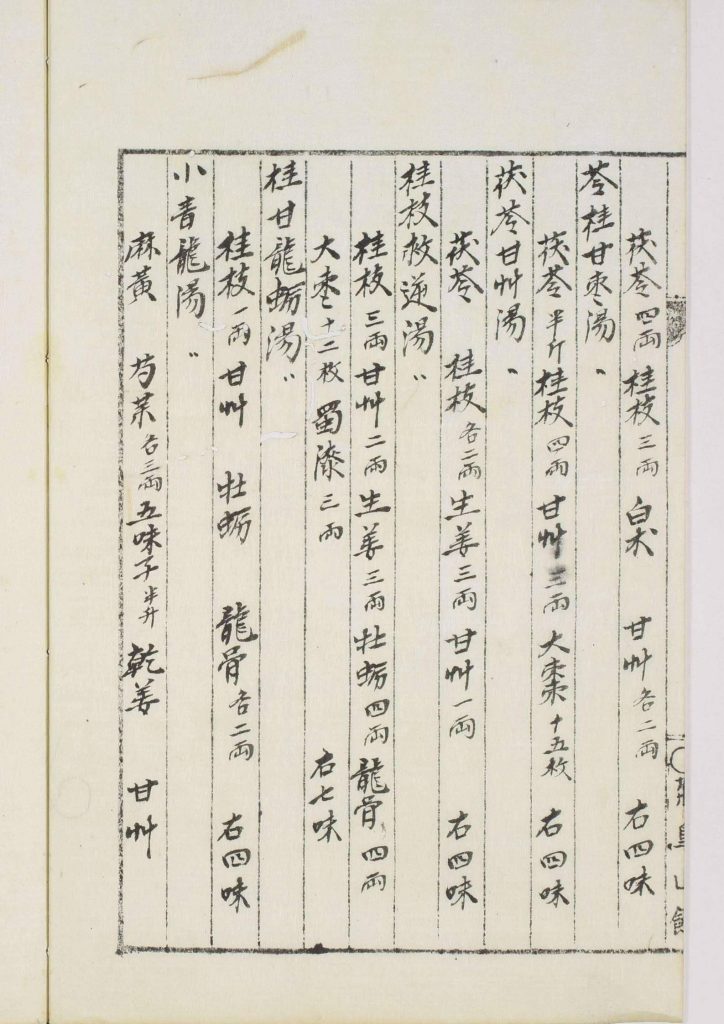 茯苓四両桂枝三両白朮甘艸各二両右四味
苓桂甘枣湯、
茯苓半斤桂枝四両甘艸三両大棗十五枚右四味
茯苓甘艸湯、
茯苓桂枝各二両生姜三両甘艸一両右四味
桂枝救逆湯〃
桂枝三両甘艸二両生姜三両牡蛎四両龍骨四両
大枣十二枚蜀漆三両右七味
桂甘龍蛎湯〃
桂枝一両甘艸牡蛎龍骨各二両右四味
小青龍湯〃
麻黄芍藥各三両五味子半升乾姜甘艸